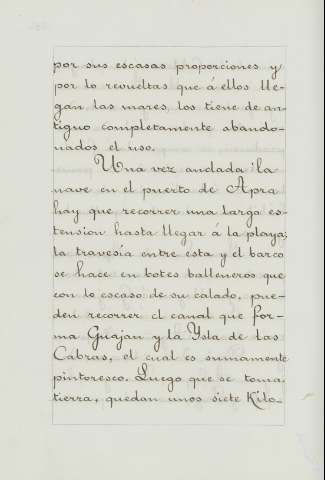 por sus escasas proporciones y
por lo revueltas que á ellos lle-
gan las mares, los tiene de an-
tiguo completamente abando-
nados el uso.
Una vez anclada la
nave en el puerto de Apra
hay que recorrer una larga es-
tension hasta llegar á la playa;
la travesia entre esta y el barco
se hace en botes balleneros que
con lo escaso de su calado, pue-
den recorrer el canal que for-
ma Guajan y la Ysla de las
Cabras, el cual es sumamente
pintoresco. Luego que se toma
tierra, quedan unos siete Kilo-